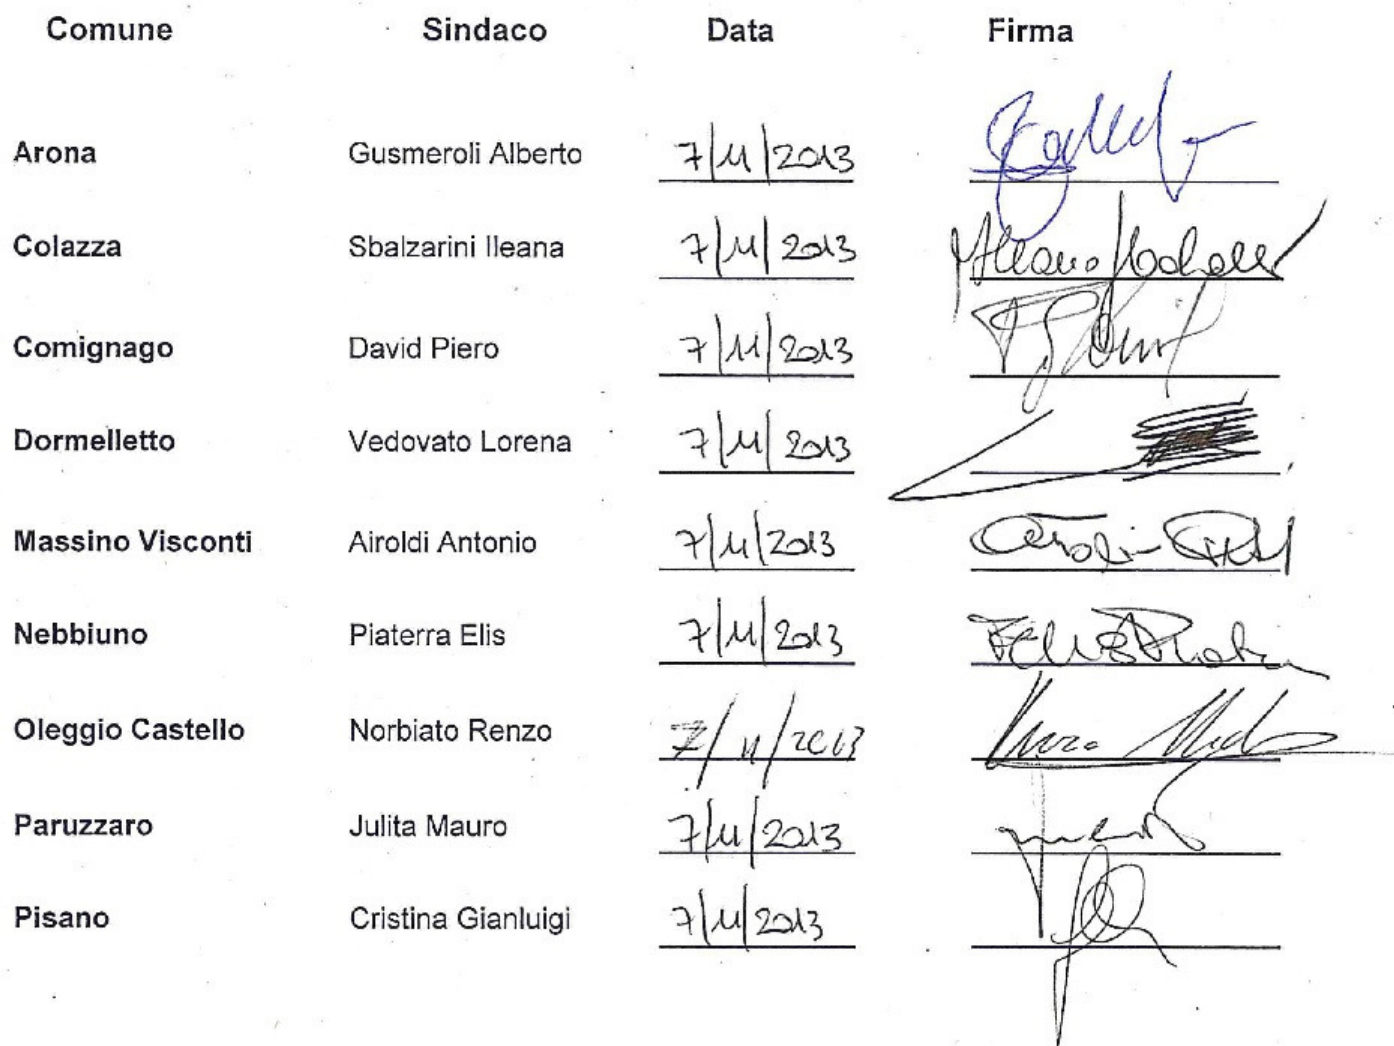 Comune Sindaco Data Firma
Arona Gusmeroli Alberto 7/11/2013
Colazza Sbalzarini Ileana 7/11/2013
Comignago David Piero 7/11/2013
Dormelletto Vedovato Lorena 7/11/2013
Massino Visconti Airoldi Antonio 7/11/2013
Nebbiuno Piaterra Elis 7/11/2013
Oleggio Castello Norbiato Renzo 7/11/2013
Paruzzaro Julita Mauro 7/11/2013
Pisano Cristina Gianluigi 7/11/2013